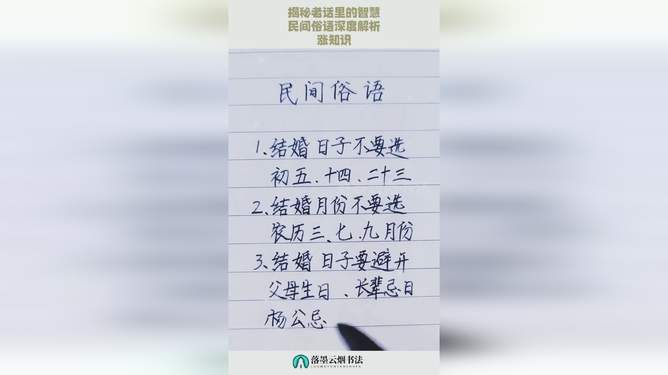 揭秘老话里的智慧
民间俗语深度解析
涨知识
民间俗语
1、结婚日子不要选
初五、十四、二十三
2、结婚月份不要选
农历三、七、九月份
3、结婚日子要避开
父母生日、长辈忌日
杨公忌
落墨云烟书法